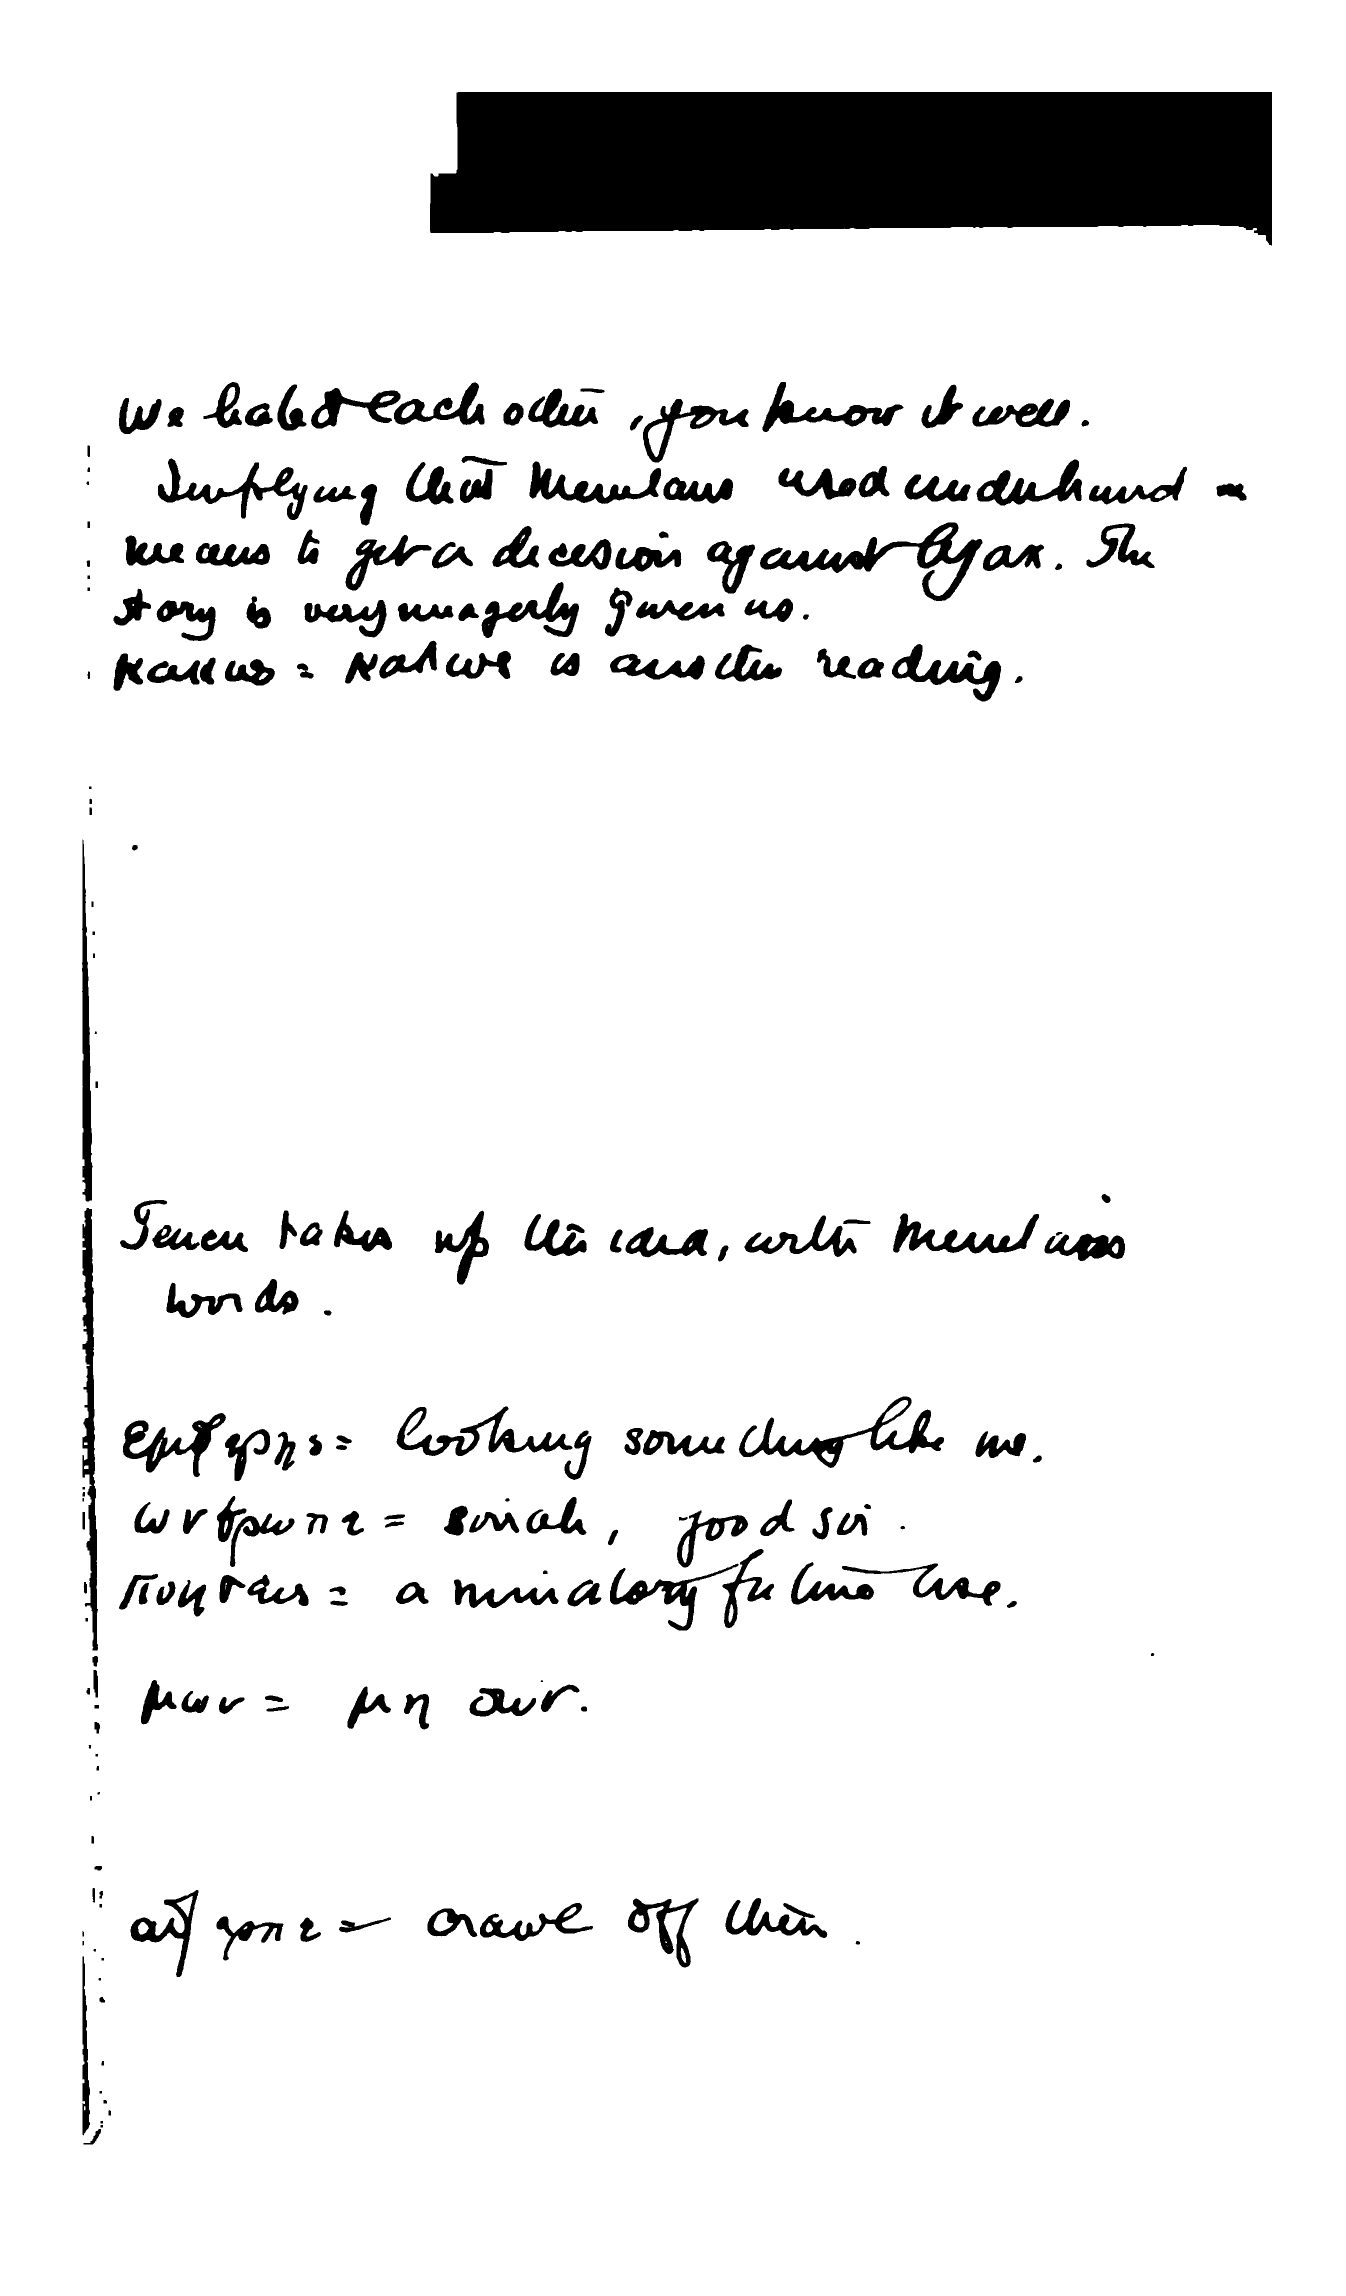 We hated each other, you know it well.
Implying that Menelaus used underhand
means to get a decision against Ajax. The
story is very meagerly given us.
κακως = καλως is another reading.
Teucer takes up the idea, with Menelaus
words.
εμφερης = looking something like me.
ωνθρωπε = sirrah, good sir.
ποιησεις = a minatory future use.
μων = μη ουν.
αψερπε = crawl off then.